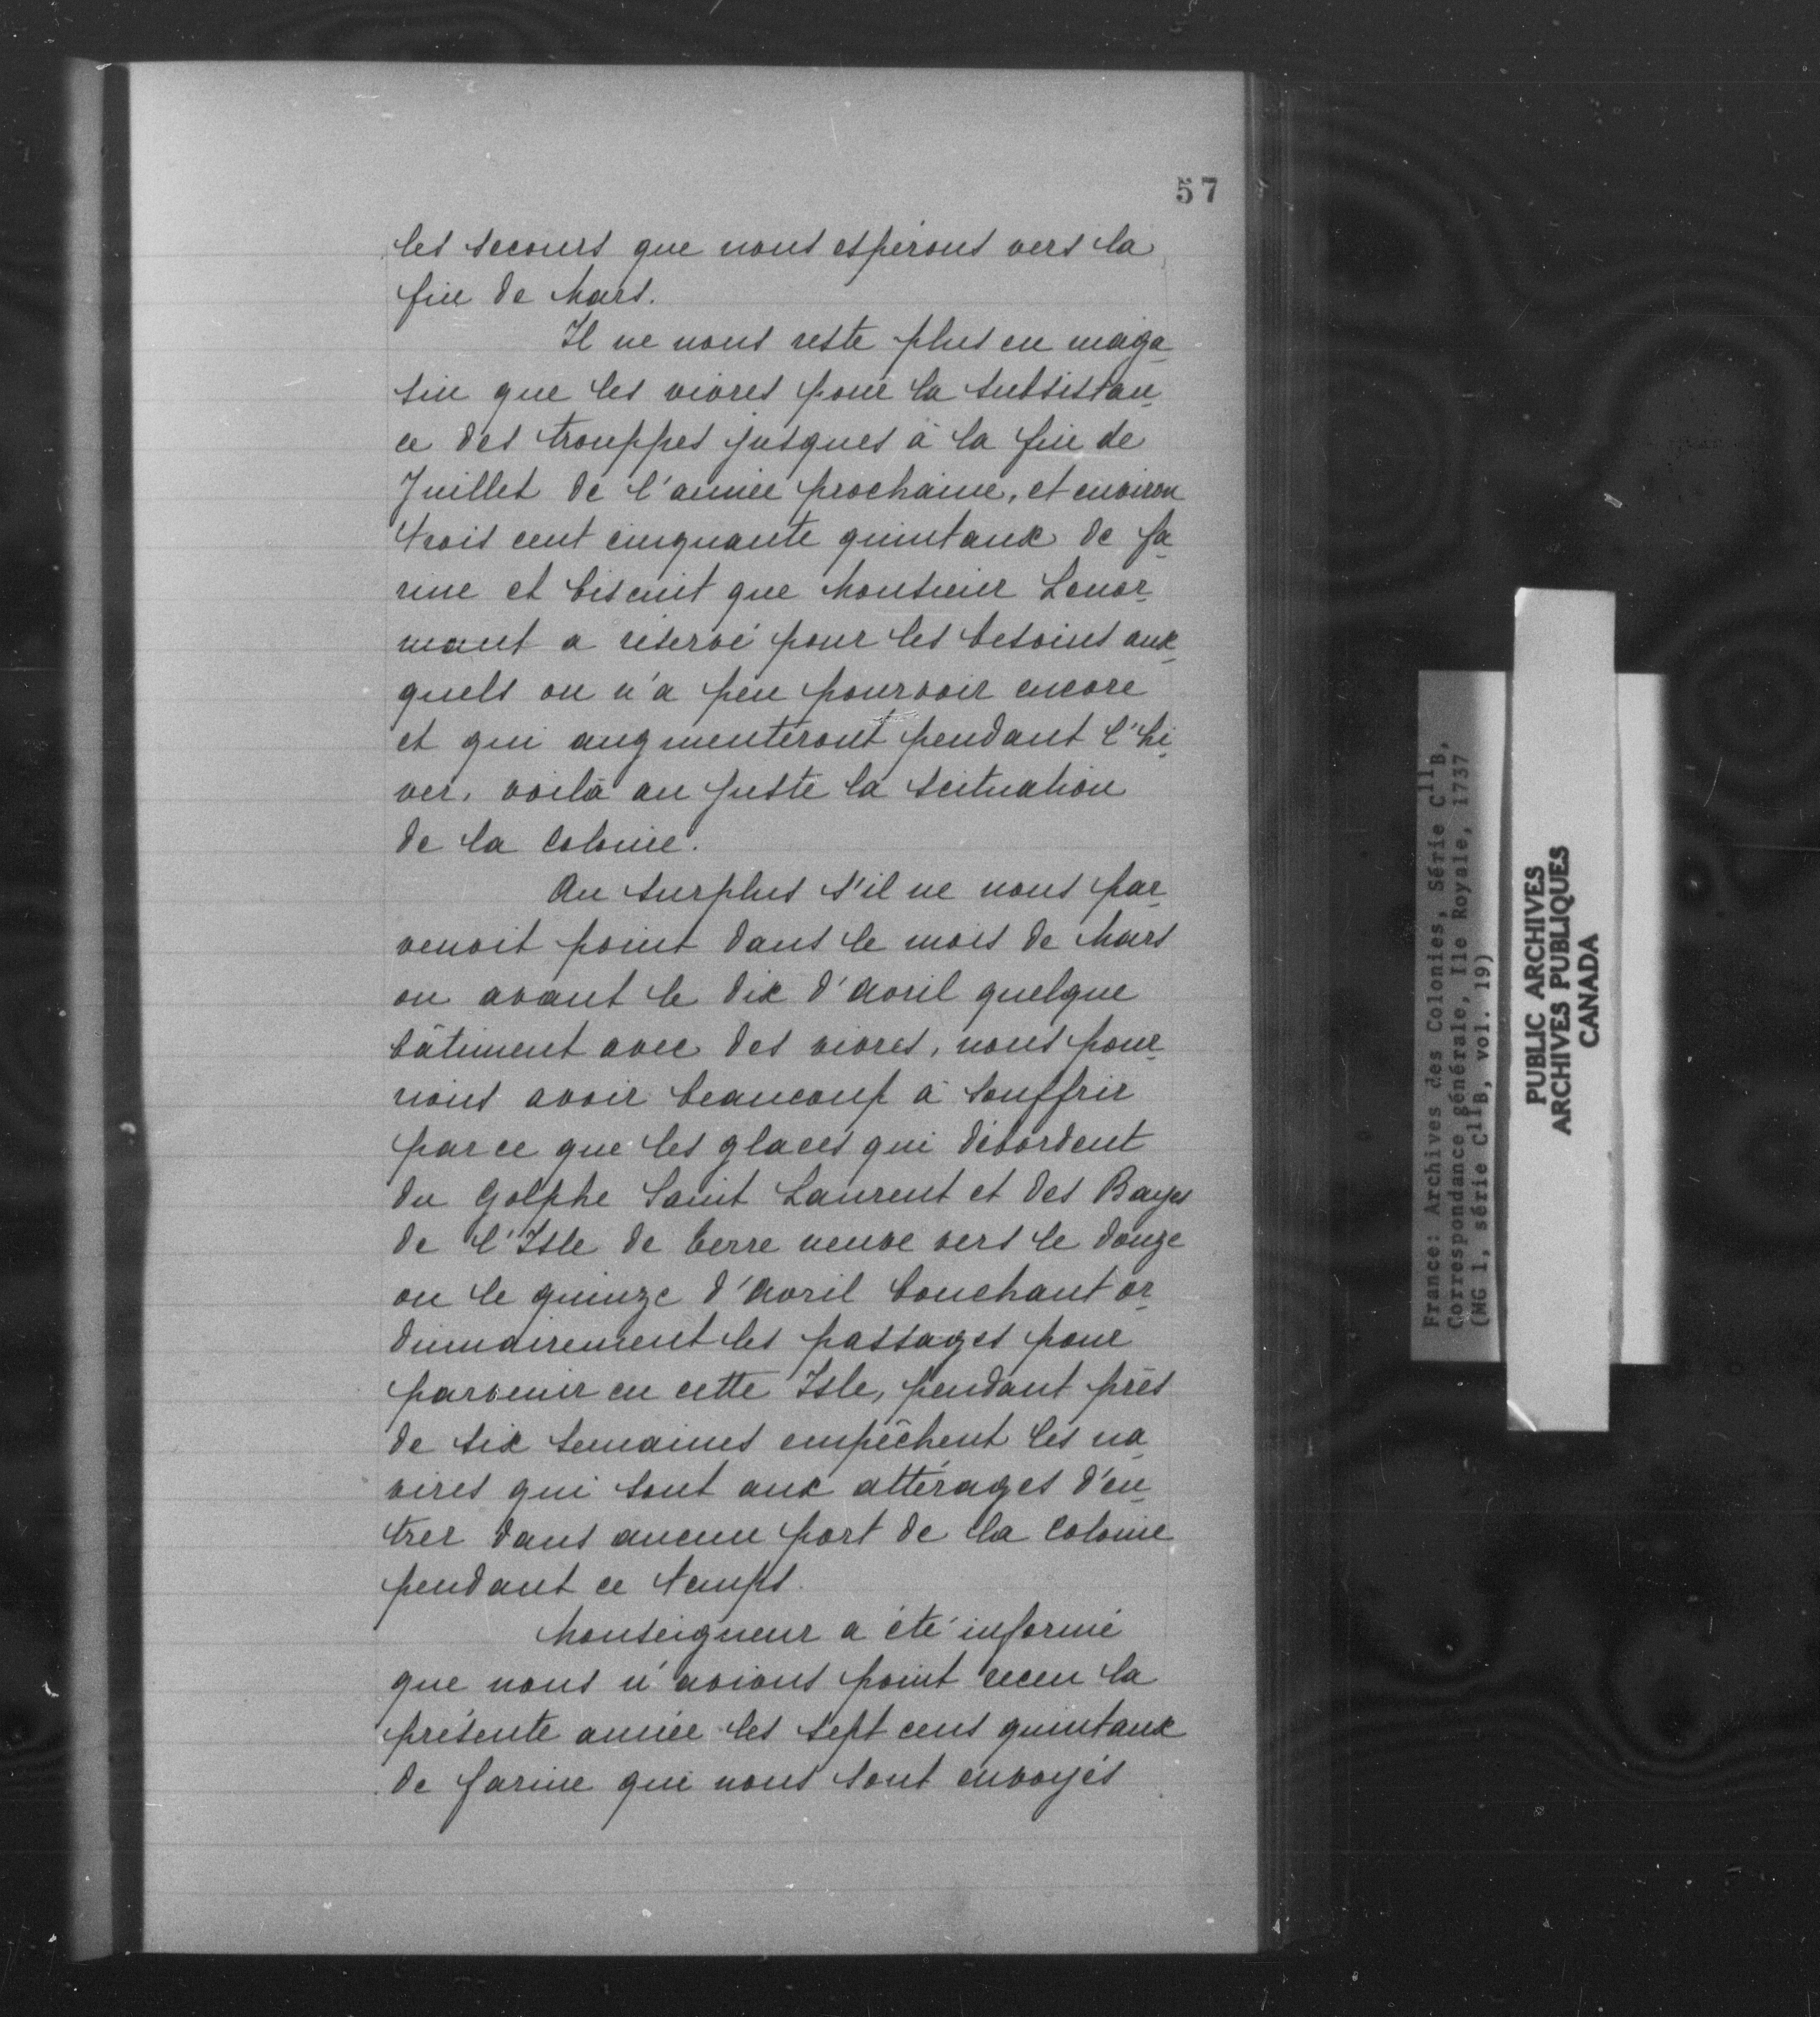 57
les secours que nous espérons vers la
fin de Mars.
Il ne nous reste plus en maga-
sin que les vivres pour la subsistan-
ce des trouppes jusques à la fin de
Juillet de l'année prochaine, et environ
trois cent cinquante quintaux de fa-
rine et biscuit que Monsieur Lenor-
mant a réservé pour les besoins aux-
quels on n'a peu pourvoir encore
et qui augmenteront pendant l'hi-
ver, voilà au juste la scituation
de la Colonie.
Au surplus s'il ne nous par-
venoit point dans le mois de Mars
ou avant le dix d'Avril quelque
bâtiment avec des vivres, nous pour-
rions avoir beaucoup à souffrir
par ce que les glaces qui débordent
du Golphe Saint Laurent et des Bayes
de l'Isle de Terre neuve vers le douze
ou le quinze d'Avril bouchant or-
dinnairement les passages pour
parvenir en cette Isle, pendant près
de six semaines empêchent les na-
vires qui sont aux attérages d'en-
trer dans aucun port de la Colonie
pendant ce temps.
Monseigneur a été informé
que nous n'avions point receu la
présente année les sept cens quintaux
de farine qui nous sont envoyés
France: Archives des Colonies, Série C11B,
Correspondance générale, Ile Royale, 1737
(MG 1, série C11B, vol. 19)
PUBLIC ARCHIVES
ARCHIVES PUBLIQUES
CANADA